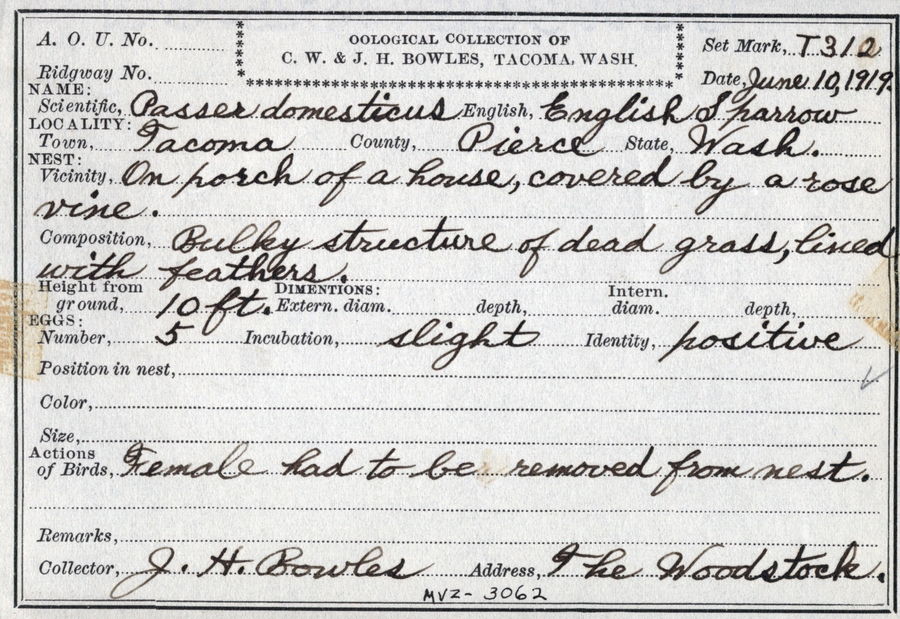 A. O. U. No.
OOLOGICAL COLLECTION OF
C. W. & J. H. BOWLES, TACOMA, WASH.
Set Mark, T312
Ridgway No.
Date, June 10, 1919.
NAME:
Scientific, Passer domesticus English, English Sparrow
LOCALITY:
Town, Tacoma County, Pierce State, Wash.
NEST:
Vicinity, On porch of a house, covered by a rose
vine.
Composition, Bulky structure of dead grass, lined
with feathers.
Height from ground, 10 ft. DIMENTIONS: Extern. diam. depth, Intern. diam. depth,
EGGS:
Number, 5 Incubation, slight Identity, positive
Position in nest,
Color,
Size,
Actions of Birds, Female had to be removed from nest.
Remarks,
Collector, J. H. Bowles Address, The Woodstock.
MVZ- 3062